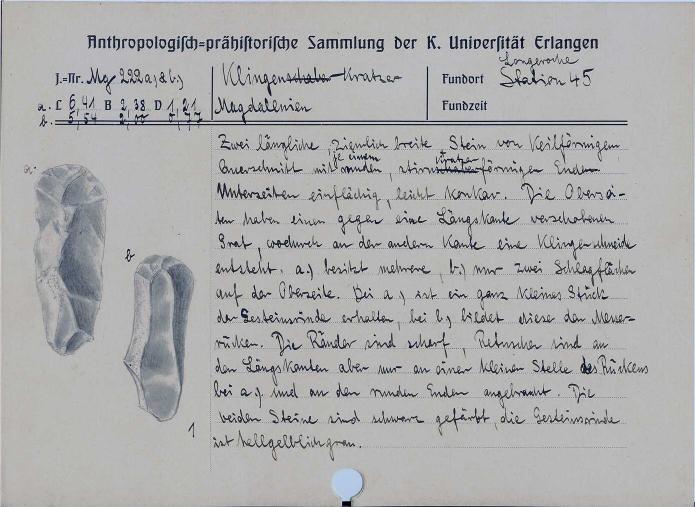 Anthropologisch=prähistorische Sammlung der K. Universität Erlangen
J.=Nr. Mg 222 a, & b,
a. L 6,41 B 2,38 D 1,21
b. 5,54 2,00 0,77
Klingenschaber Kratzer
Magdalénien
Longeroche
Fundort Station 45
Fundzeit
Zwei längliche, ziemlich breite Stein von Keilförmigem
Querschnitt mit je einem runden, stirnschaber kratzer förmigen Enden
Unterseiten einflächig, leicht konkav. Die Obersei-
ten haben einen gegen eine Längskante verschobenen
Grat, wodurch an der andern Kante eine Klingenschneide
entsteht. a.) besitzt mehrere, b.) nur zwei Schlagflächen
auf der Oberseite. Bei a) ist ein ganz kleines Stück
der Gesteinsrinde erhalten, bei b) bildet diese den Messer-
rücken. Die Ränder sind scharf, Retuschen sind an
den Längskanten aber nur an einer kleinen Stelle des Rückens
bei a). und an den runden Enden angebracht. Die
beiden Steine sind schwarz gefärbt, die Gesteinsrinde
ist hellgelblichgrau.
a.
b
1